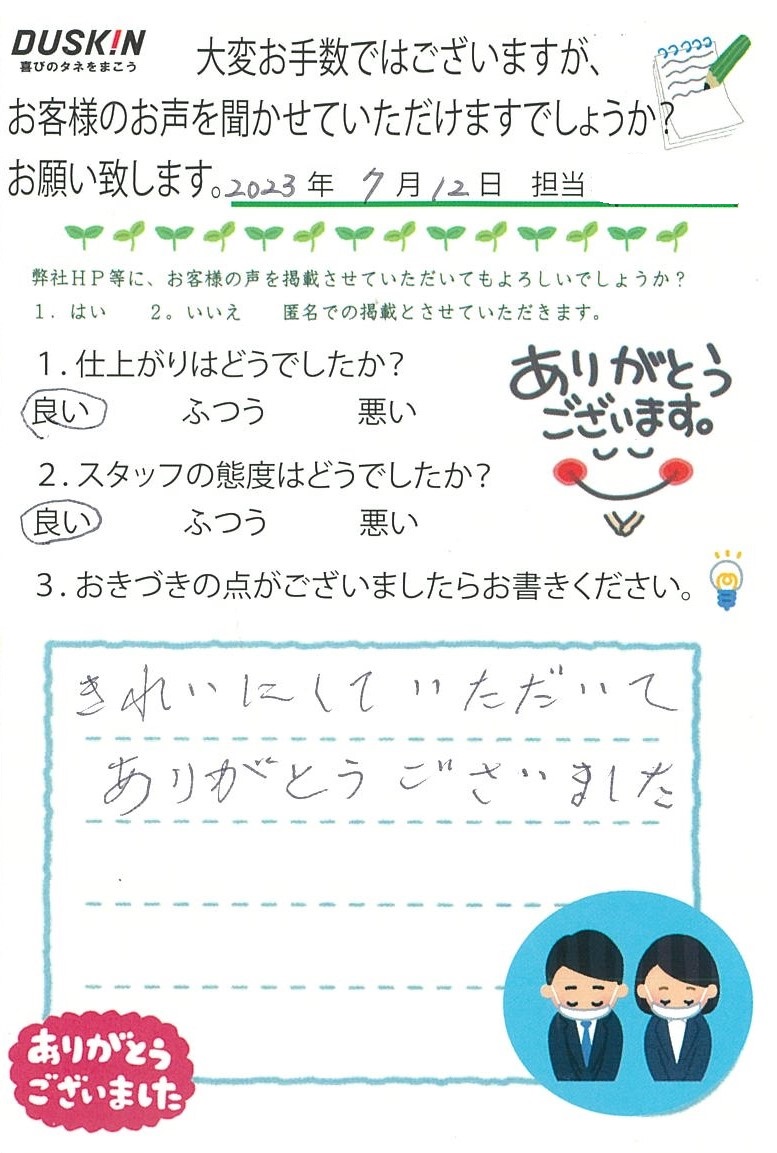 DUSKIN
喜びのタネをまこう
大変お手数ではございますが、
お客様のお声を聞かせていただけますでしょうか?
お願い致します。2023年 7月12日 担当
弊社HP等に、お客様の声を掲載させていただいてもよろしいでしょうか?
1．はい 2。いいえ 匿名での掲載とさせていただきます。
1．仕上がりはどうでしたか?
良い ふつう 悪い
ありがとう
ございます。
2．スタッフの態度はどうでしたか?
良い ふつう 悪い
3．おきづきの点がございましたらお書きください。
きれいにして いただいて
ありがとう ございました
ありがとう
ございました